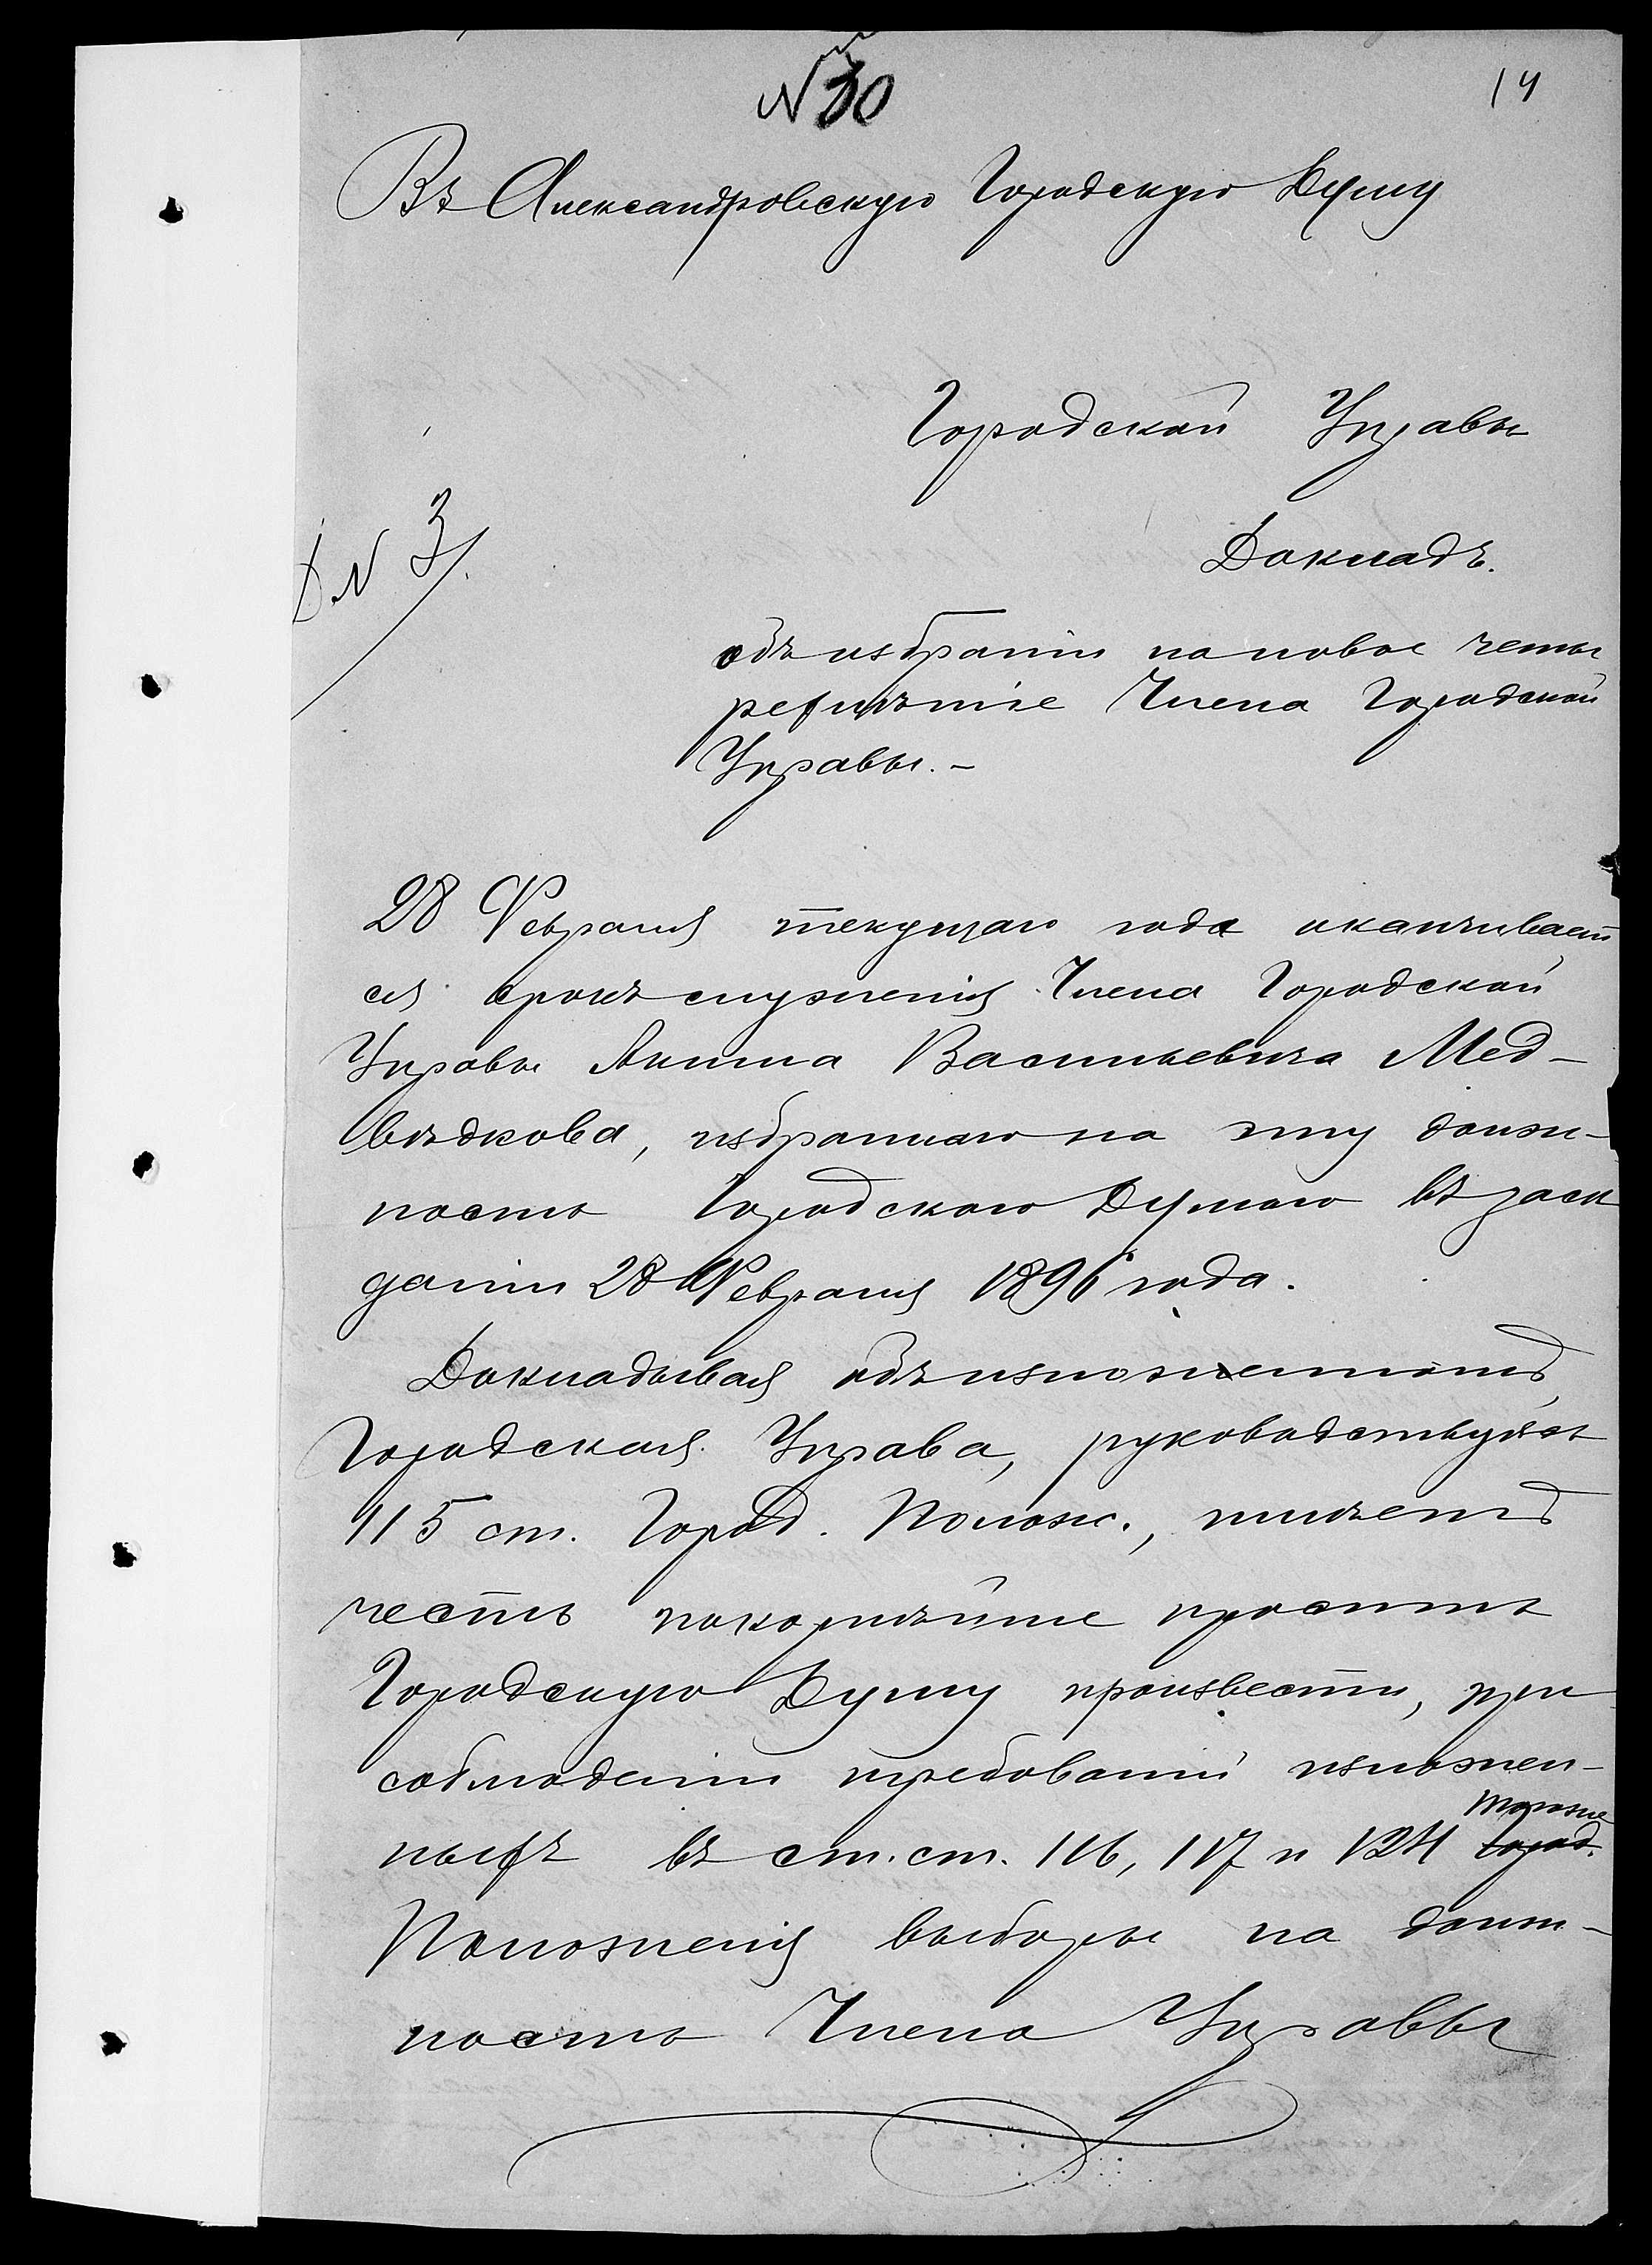 N 30
14
Въ Александровскую Городскую Думу
Городской Управы
N 3
Докладъ.
объ избраніи на новое четы
рехлѣтіе Члена Городской
Управы. -
28 Февраля текущаго года оканчивает
ся срокъ служенія Члена Городской
Управы Акима Васильевича Мед-
вѣдкова, избраннаго на эту долж-
ность Городскою Думою въ засѣ
даніи 28 Февраля 1896 года.
Докладывая объ изложенномъ,
Городская Управа, руководствуясь
115 ст. Город. Полож., имѣетъ
честь покорнѣйше просить
Городскую Думу произвести, при
соблюденіи требованій изложен-
ныхъ въ ст. ст. 116, 117 и 124 город.
тогоже
Положенія выборы на долж-
ность Члена Управы